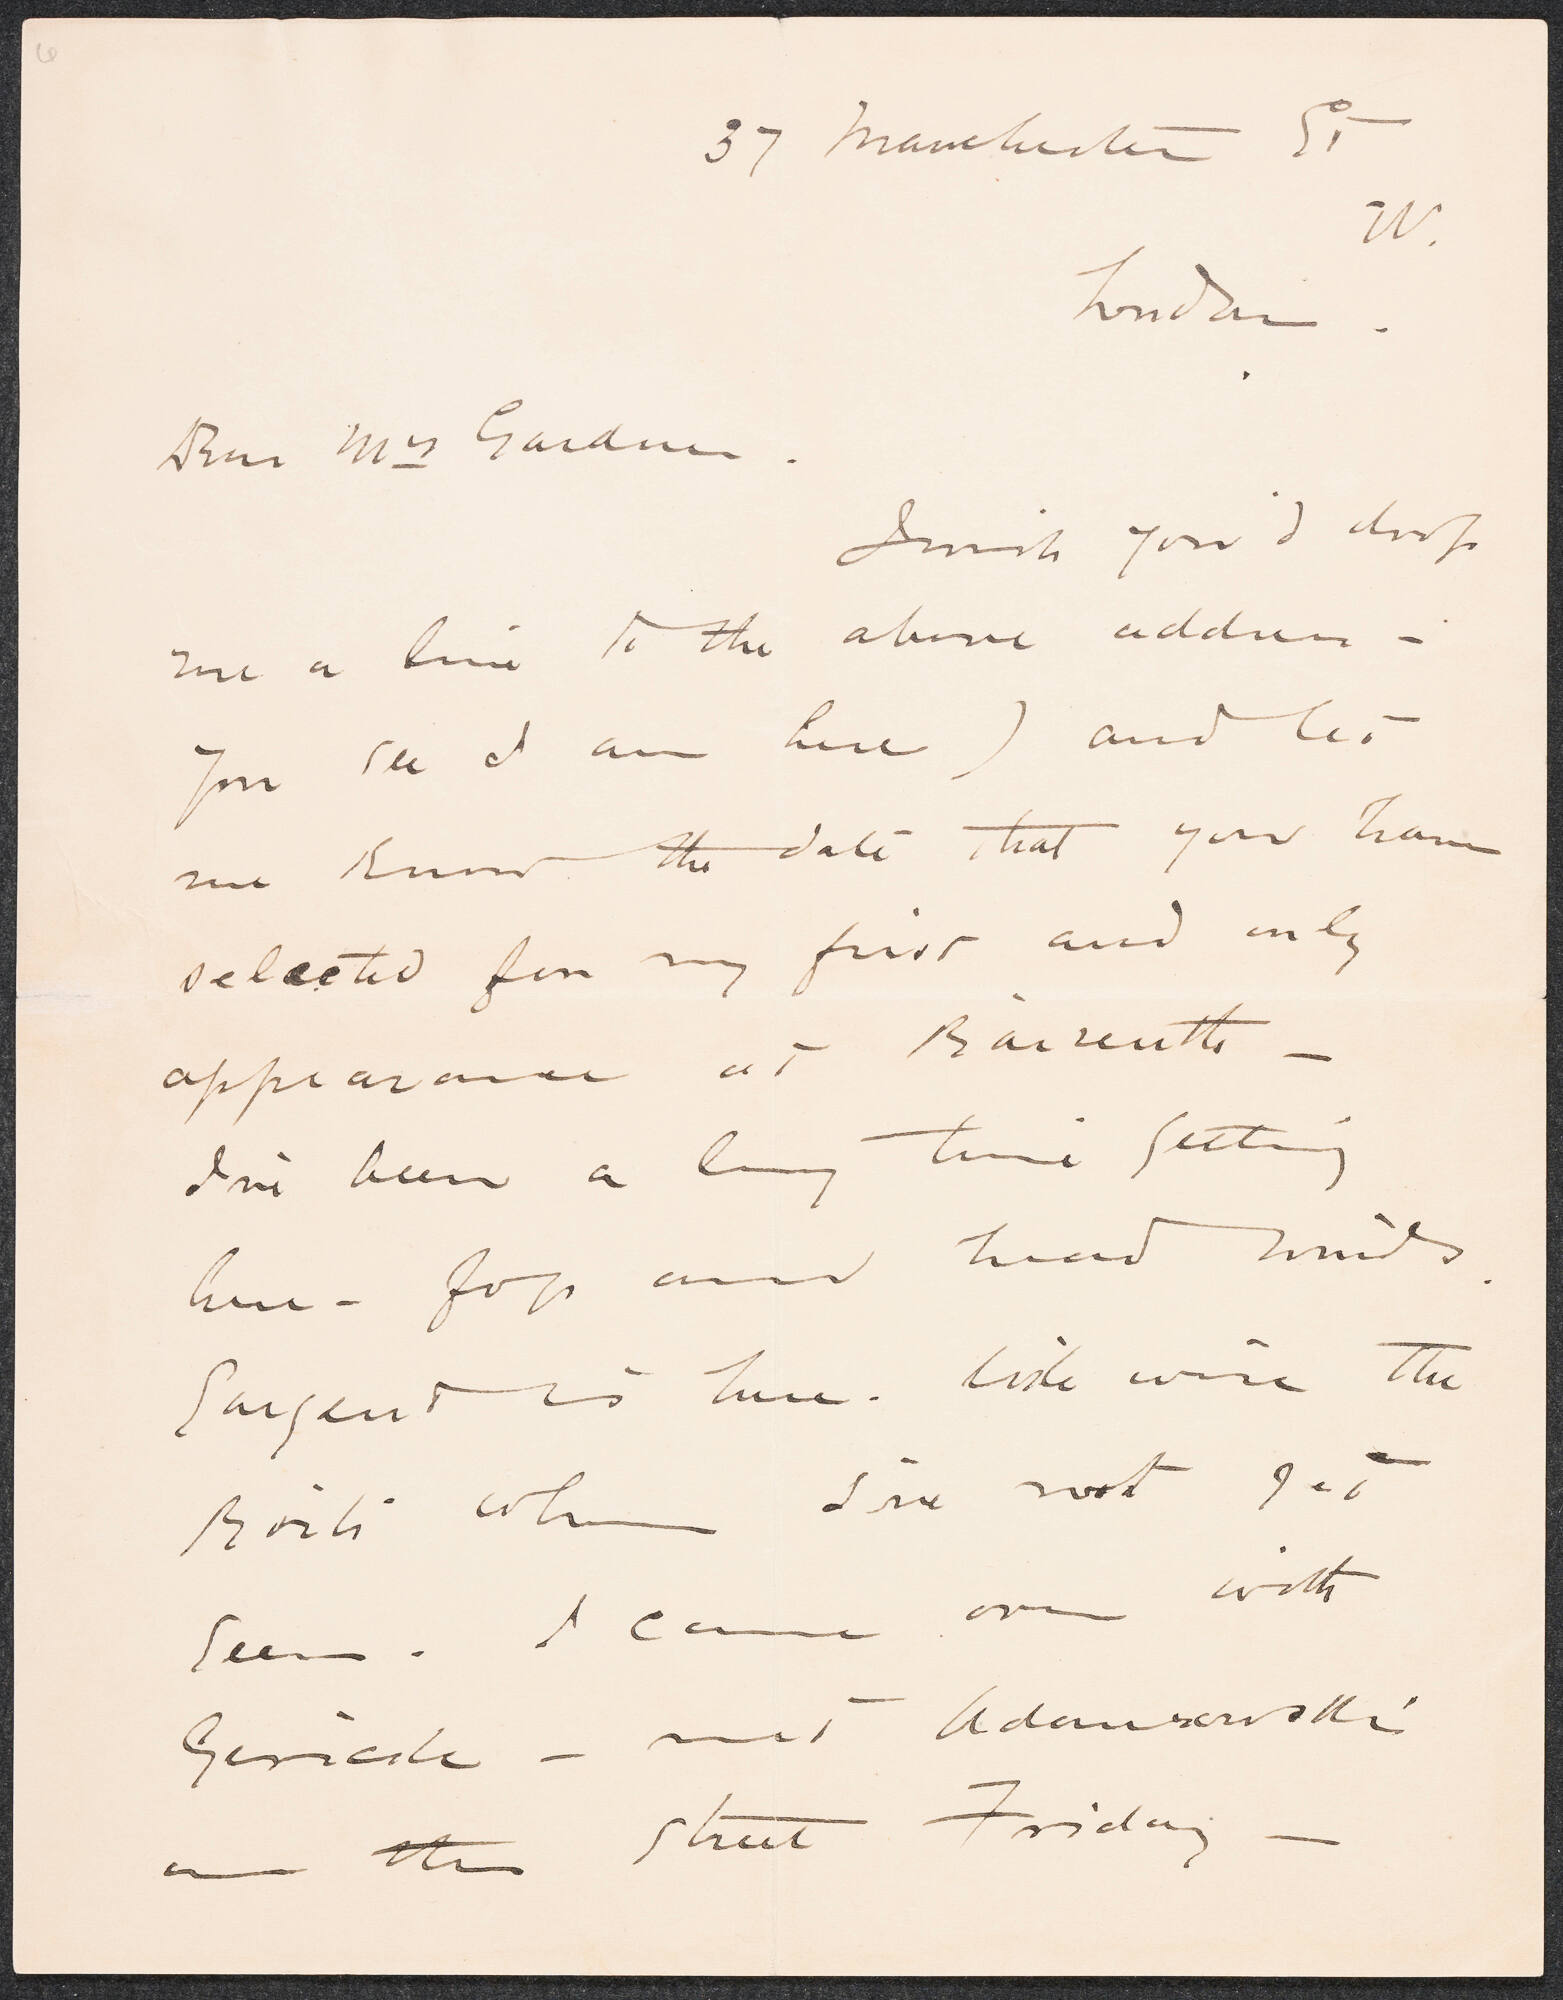 6
37 Manchester St
W.
London.
Dear Mrs Gardner.
I wish you'd drop
me a line to the above address -
you see I am here) and let
me know the date that you have
selected for my first and only
appearance at Baireuth -
I've been a long time getting
here - fog and head winds.
Sargent is here. Like wise the
Boits whom I've not yet
seen. I came over with
Gericke - met Adamowski
on the street Friday -